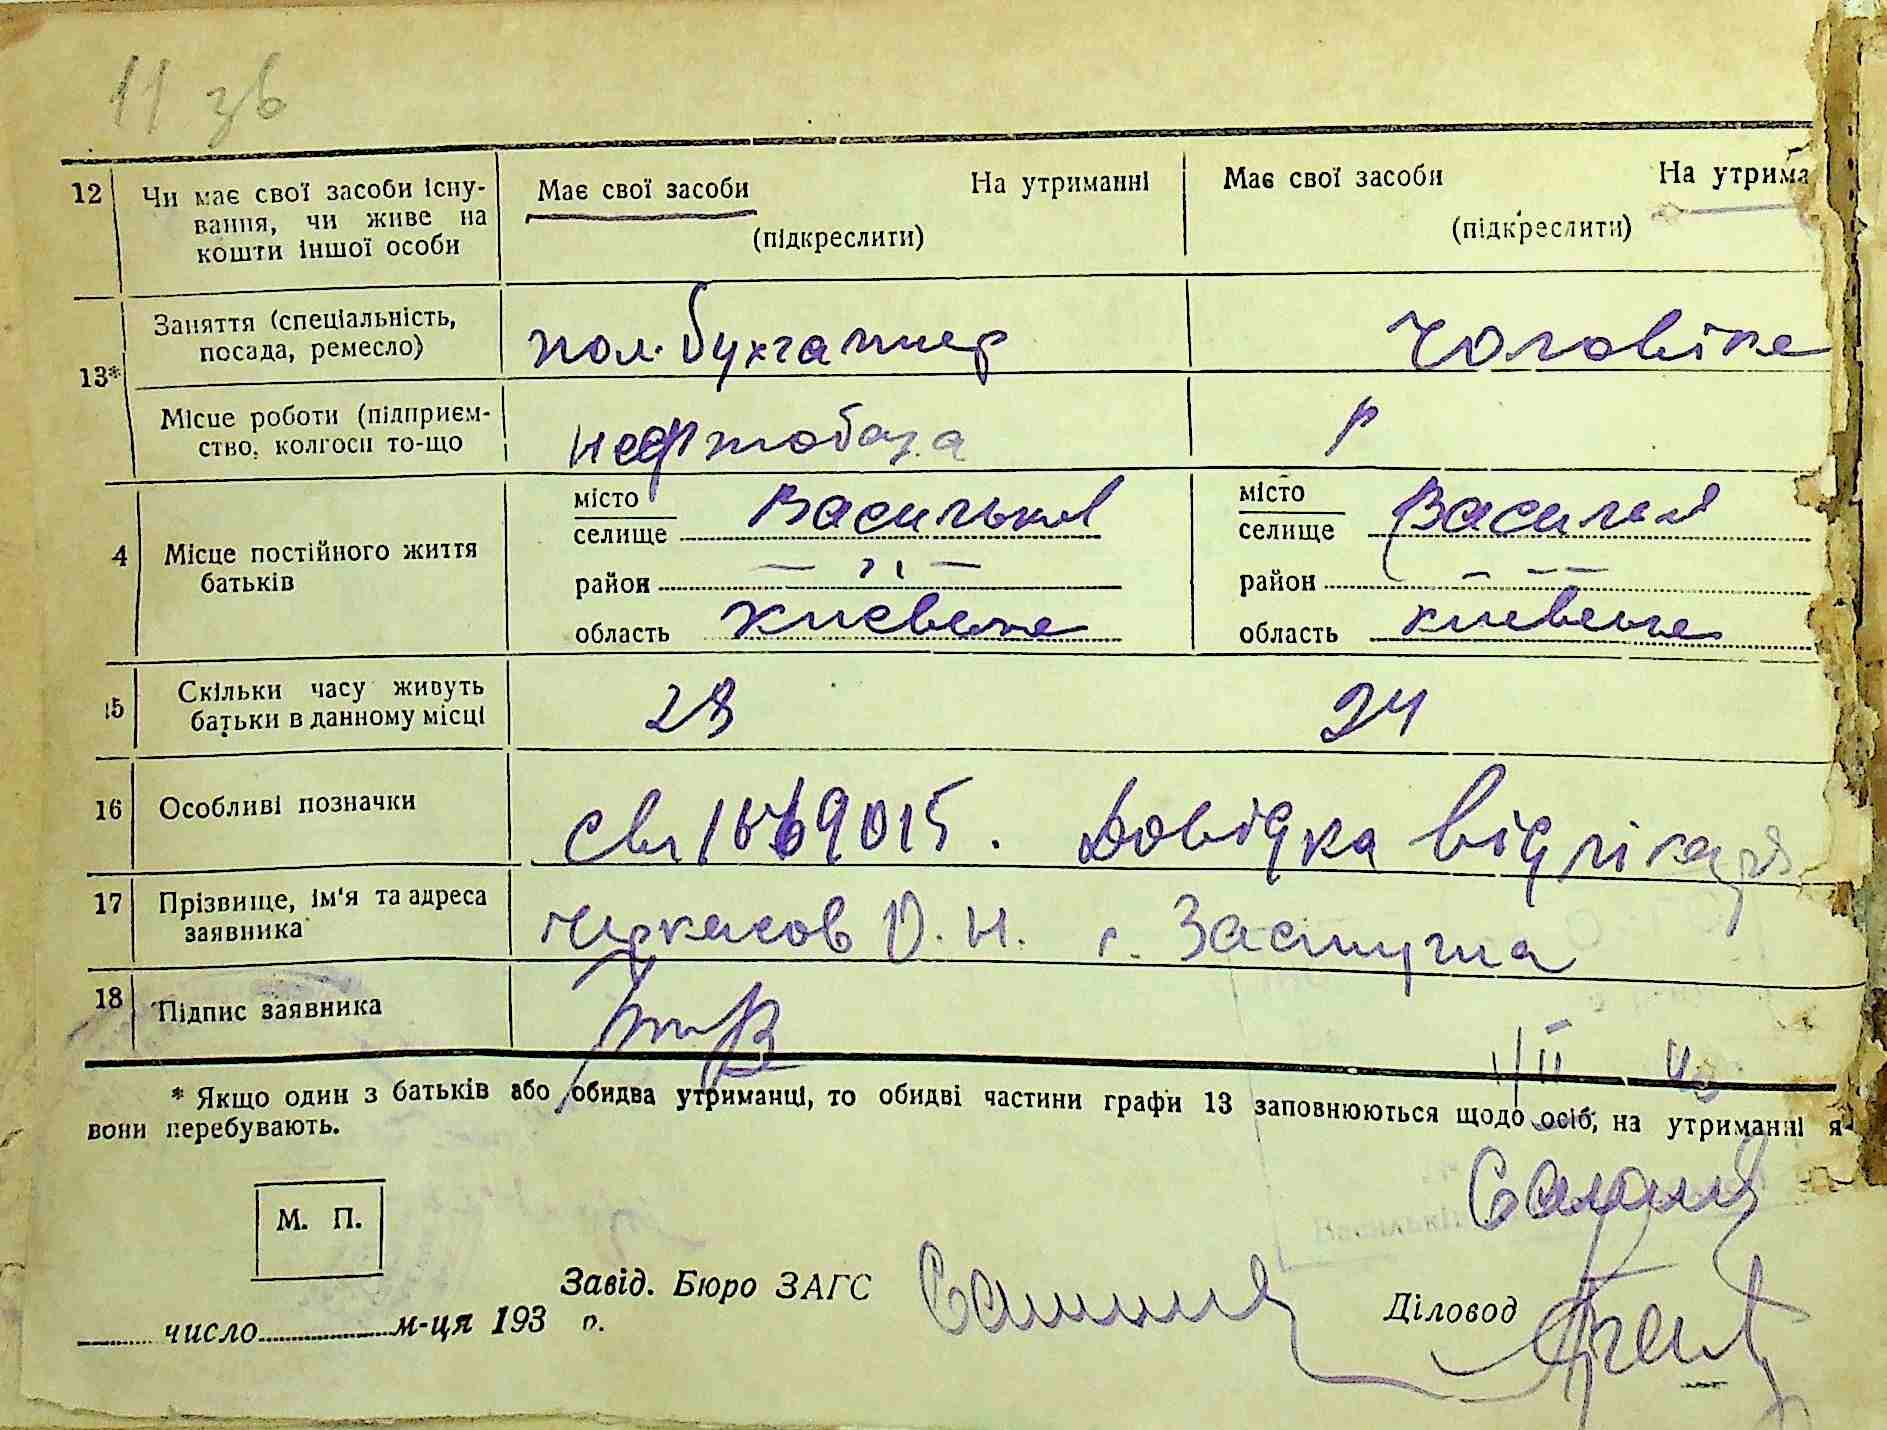 11 зв
12 Чи має свої засоби існу- Має свої засоби На утриманні Має свої засоби На утрима
вання, чи живе на (підкреслити) (підкреслити)
кошти іншої особи
13* Заняття (спеціальність, пом. бухгалтер Чоловіка
посада, ремесло)
Місце роботи (підприєм- нефтобаза
ство, колгосп то-що
4 Місце постійного життя місто Васильков місто
батьків селище селище
район район
область Киевська область Киевська
15 Скільки часу живуть 28 24
батьки в данному місці
16 Особливі позначки Довідка від лікаря
17 Прізвище, ім'я та адреса Черкасов О. Н. с. Застугна
заявника
18 Підпис заявника
VII 40
* Якщо один з батьків або обидва утриманці, то обидві частини графи 13 заповнюються щодо осіб, на утриманні я
вони перебувають.
М. П.
Завід. Бюро ЗАГС Діловод
число м-ця 193 р.